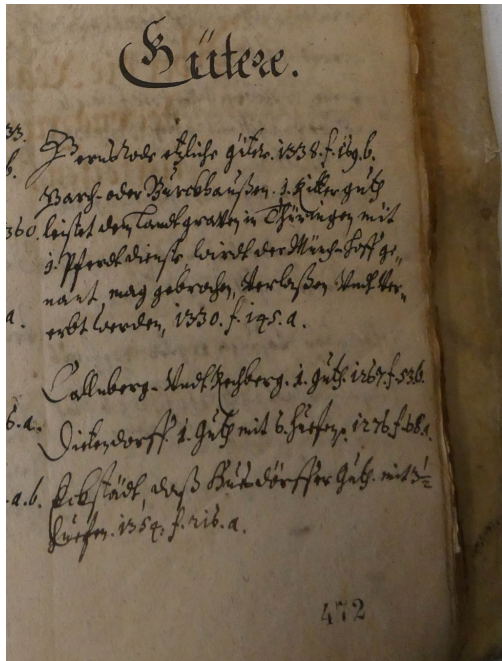 Gütere.
33.
b.
Bernßrode etzliche güter. 1338. f. 169. b.
Barch- oder Burckhaußen. 1. Ritter guth
360. leistet den Landtgraven in Thüringen mit
1. Pferdt dienste wirdt der Münch-hoff ge-
nant, mag gebrochen, verlaßen undt ver-
a. erbt werden, 1330. f. 145. a.
Callnberg- undt Rechberg. 1. guth. 1267. f. 53. b.
6. a. Dietendorff. 1. Guth mit 6. huefen. 1276. f. 68. a.
a. b. Eckstädt, daß dörffer Guth. mit 3½
huefen. 1354. f. 216. a.
472